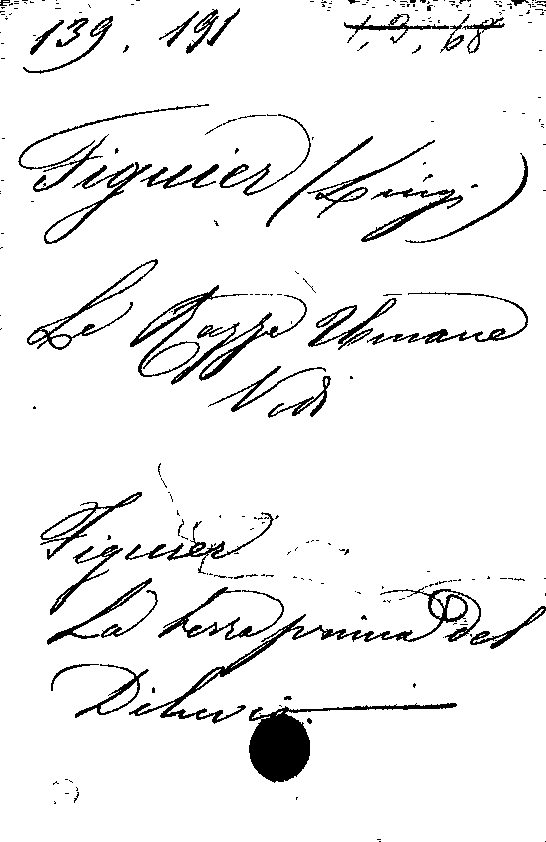 139. 191 1, 3, 68
Figuier (Luigi)
Le Razze Umane
Vidi
Figuier
La terra prima del
Diluvio.